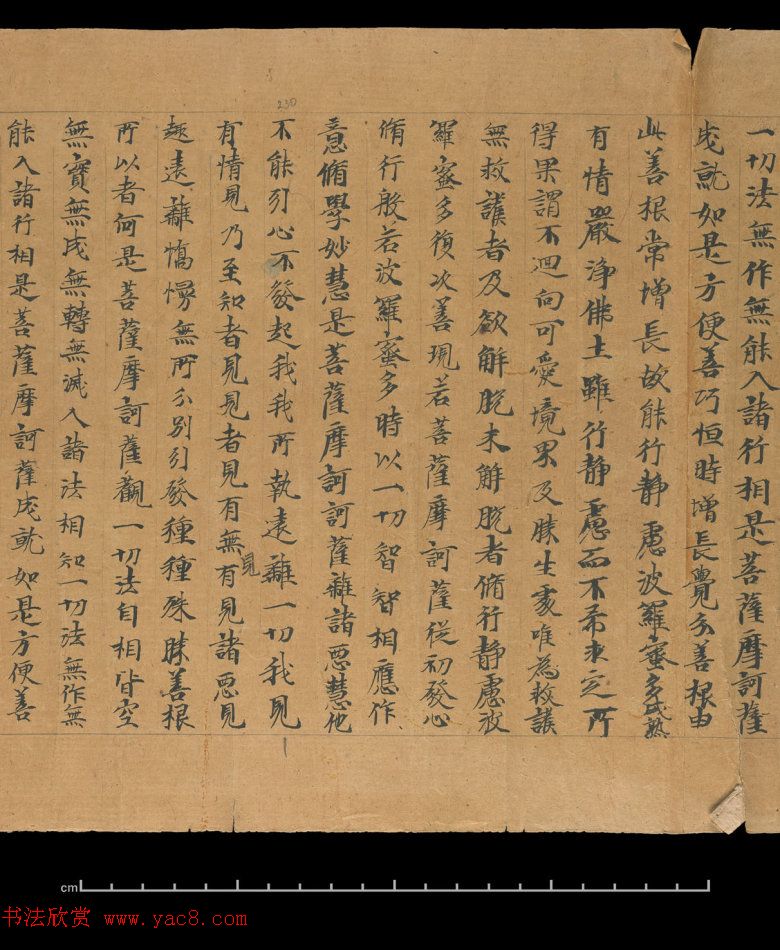 一切法無作無能入諸行相是菩薩摩訶薩
成就如是方便善巧恒時增長覺分善根由
此善根常增長故能行靜慮波羅蜜多成熟
有情嚴淨佛土雖行靜慮而不希求定所
得果謂不迴向可愛境界及勝生處唯為救護
無救護者及欲解脫未解脫者脩行靜慮波
羅蜜多復次善現若菩薩摩訶薩從初發心
脩行般若波羅蜜多時以一切智智相應作
意脩學妙慧是菩薩摩訶訶薩離諸惡慧他
不能引心不發起我我所執遠離一切我見
有情見乃至知者見見者見有無有見諸惡見
見
趣遠離憍慢無所分別引發種種殊勝善根
所以者何是菩薩摩訶薩觀一切法自相皆空
無實無成無轉無滅入諸法相知一切法無作無
能入諸行相是菩薩摩訶薩成就如是方便善
230
cm
书法欣赏 www.yac8.com